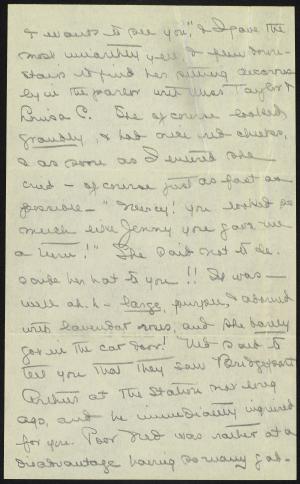 & wants to see you," & I gave the
most unearthly yell & flew down-
stairs to find her sitting decorous
ly in the parlor with Miss Taylor &
Louisa C. She of course looked
grandly, & had nice red cheeks,
& as soon as I entered she
cried - of course just as fast as
possible - "Mercy! you looked so
much like Jenny you gave me
a turn!" She said not to de-
scribe her hat to you!! It was -
well ah-h - large, purple, & adorned
with lavender roses, and she barely
got in the car door! Ned said to
tell you that they saw Bridgeport
Archer at the Station not long
ago, and he immediately inquired
for you. Poor Ned was rather at a
disadvantage having so many gab-